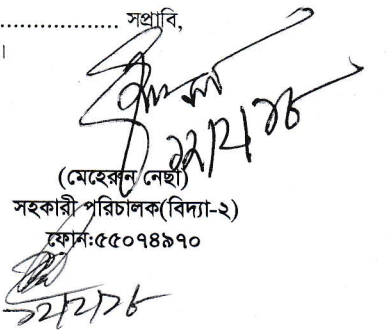 .................... সপ্রাবি,
।
(মেহেরুন নেছা)
সহকারী পরিচালক(বিদ্যা-২)
ফোন:৫৫০৭৪৯৭০